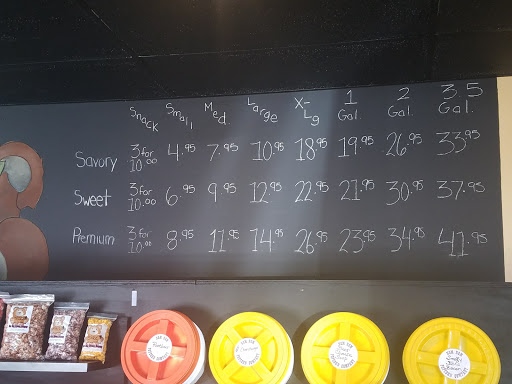 Snack Small Med Large X-Lg 1 Gal. 2 Gal. 3.5 Gal.
Savory 3 for 10.00 4.95 7.95 10.95 18.95 19.95 26.95 33.95
Sweet 3 for 10.00 6.95 9.95 12.95 22.95 21.95 30.95 37.95
Premium 3 for 10.00 8.95 11.95 14.95 26.95 23.95 34.95 41.95